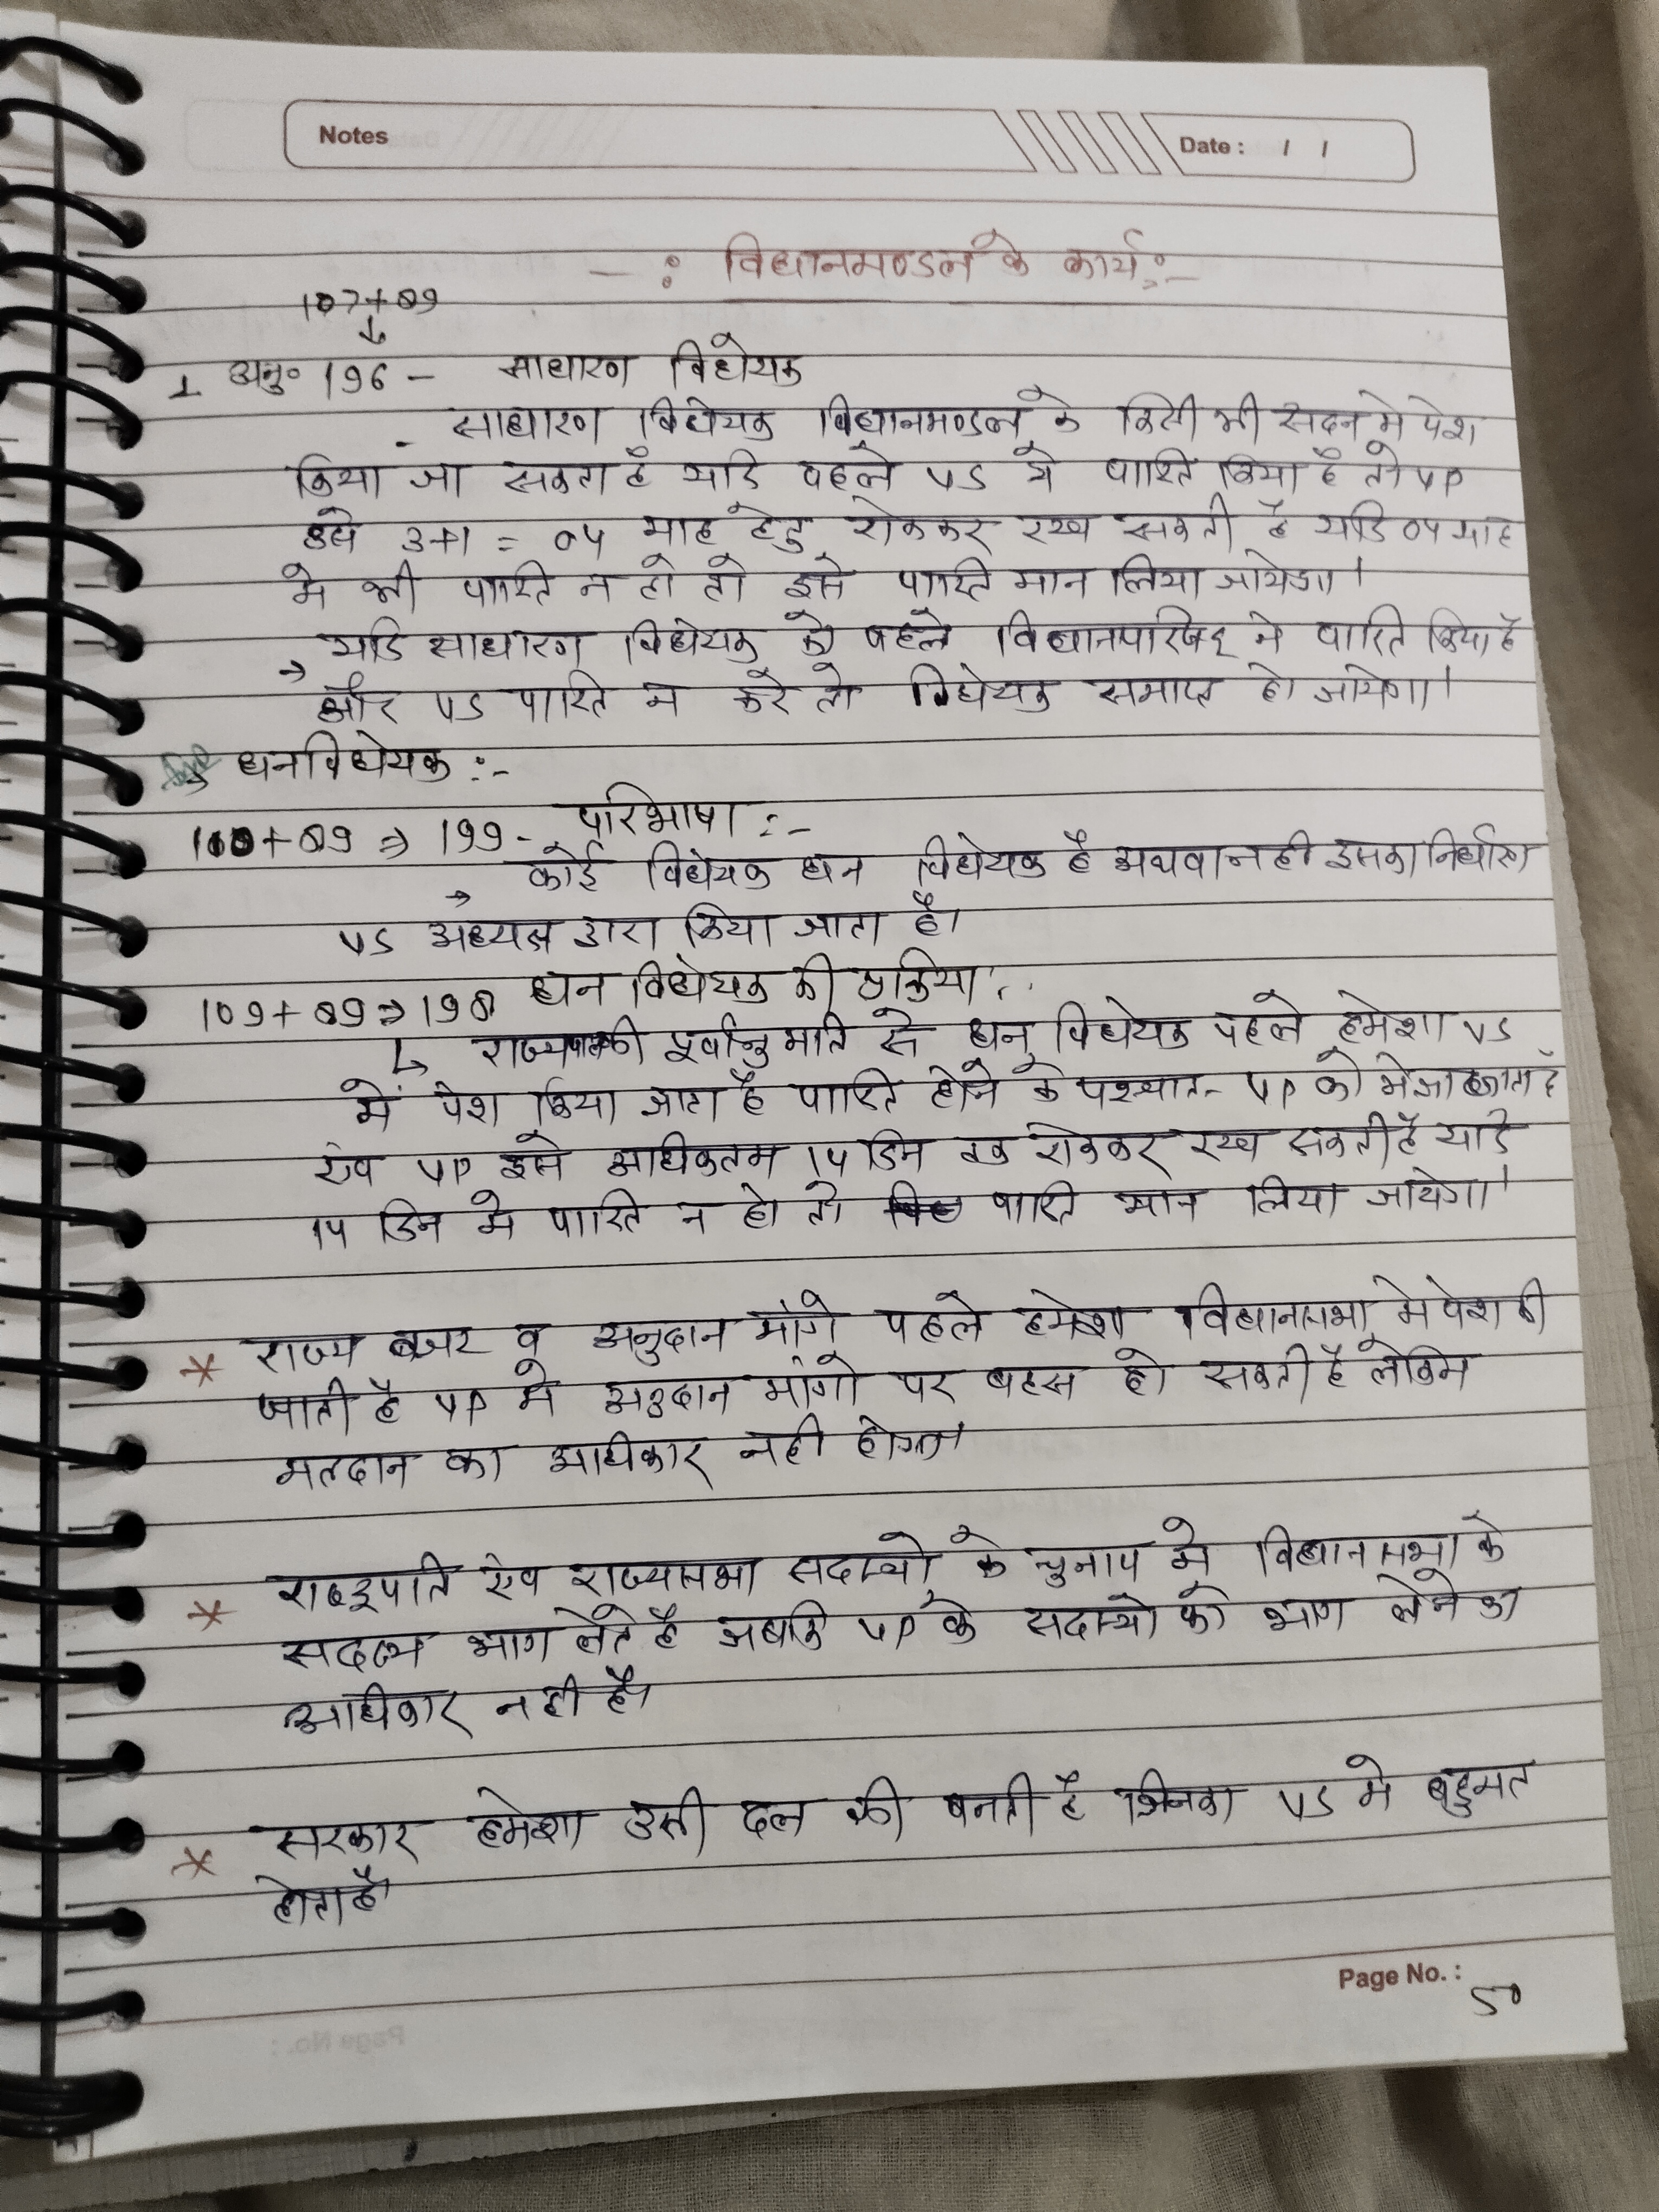 Notes
Date : / /
- : विधानमण्डल के कार्य :-
107+89
↓
1 अनु० 196 - साधारण विधेयक
- साधारण विधेयक विधानमण्डल के किसी भी सदन मे पेश
किया जा सकता है यदि पहले VS ने पारित किया है तो VP
उसे 3+1 = 04 माह हेतु रोककर रख सकती है यदि 04 माह
मे भी पारित न हो तो इसे पारित मान लिया जायेगा।
→ यदि साधारण विधेयक को पहले विधानपरिषद ने पारित किया है
और VS पारित न करे तो विधेयक समाप्त हो जायेगा।
धनविधेयक :-
110+89 ⇒ 199 - परिभाषा :-
→ कोई विधेयक धन विधेयक है अथवा नही इसका निर्धारण
VS अध्यक्ष द्वारा किया जाता है।
109+89 ⇒ 198 धन विधेयक की प्रक्रिया :-
↳ राज्यपाल की पूर्वानुमति से धन विधेयक पहले हमेशा VS
में पेश किया जाता है पारित होने के पश्चात- VP को भेजा जाता है
एंव VP इसे अधिकतम 14 दिन तक रोककर रख सकती है यदि
14 दिन मे पारित न हो तो पारित मान लिया जायेगा।
* राज्य बजट व अनुदान मांगे पहले हमेशा विधानसभा मे पेश की
जाती है VP मे अनुदान मांगो पर बहस हो सकती है लेकिन
मतदान का अधिकार नही होगा।
* राष्ट्रपति एंव राज्यसभा सदस्यो के चुनाव मे विधानसभा के
सदस्य भाग लेते है जबकि VP के सदस्यो को भाग लेने का
अधिकार नही है।
* सरकार हमेशा उसी दल की बनती है जिनका VS मे बहुमत
होता है
Page No. : 50